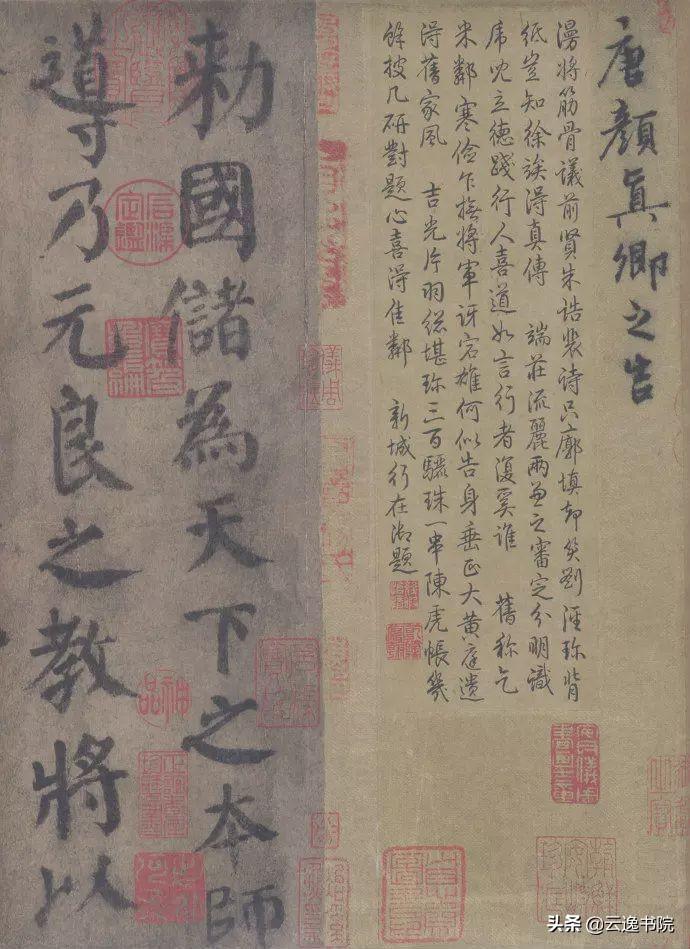 唐顏真卿之告
漫將筋骨議前賢朱誥裴詩只廓填却笑劉涇珎背
紙豈知徐得真傳 端莊流麗兩兼之審定分明識
立德踐行人喜道如言行者復奚誰 舊称乞
米鄰寒儉乍撫將軍訝宕雄何似告身垂正大黃庭遺
得舊家風 吉光片羽總堪珎三百驪珠一串陳虎帳幾
餘披几研對題心喜得佳鄰 新城行在御題
勅國儲為天下之本師
導乃元良之教將以
头条 @云逸书院